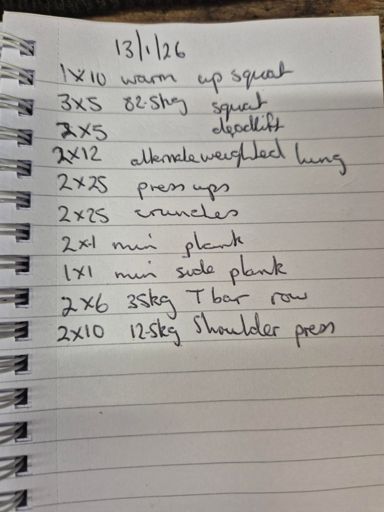 13/1/26
1x10 warm up squat
3x5 82.5kg squat
2x5 deadlift
2x12 alternate weighted lung
2x25 press ups
2x25 crunches
2x1 min plank
1x1 min side plank
2x6 35kg T bar row
2x10 12.5kg Shoulder press